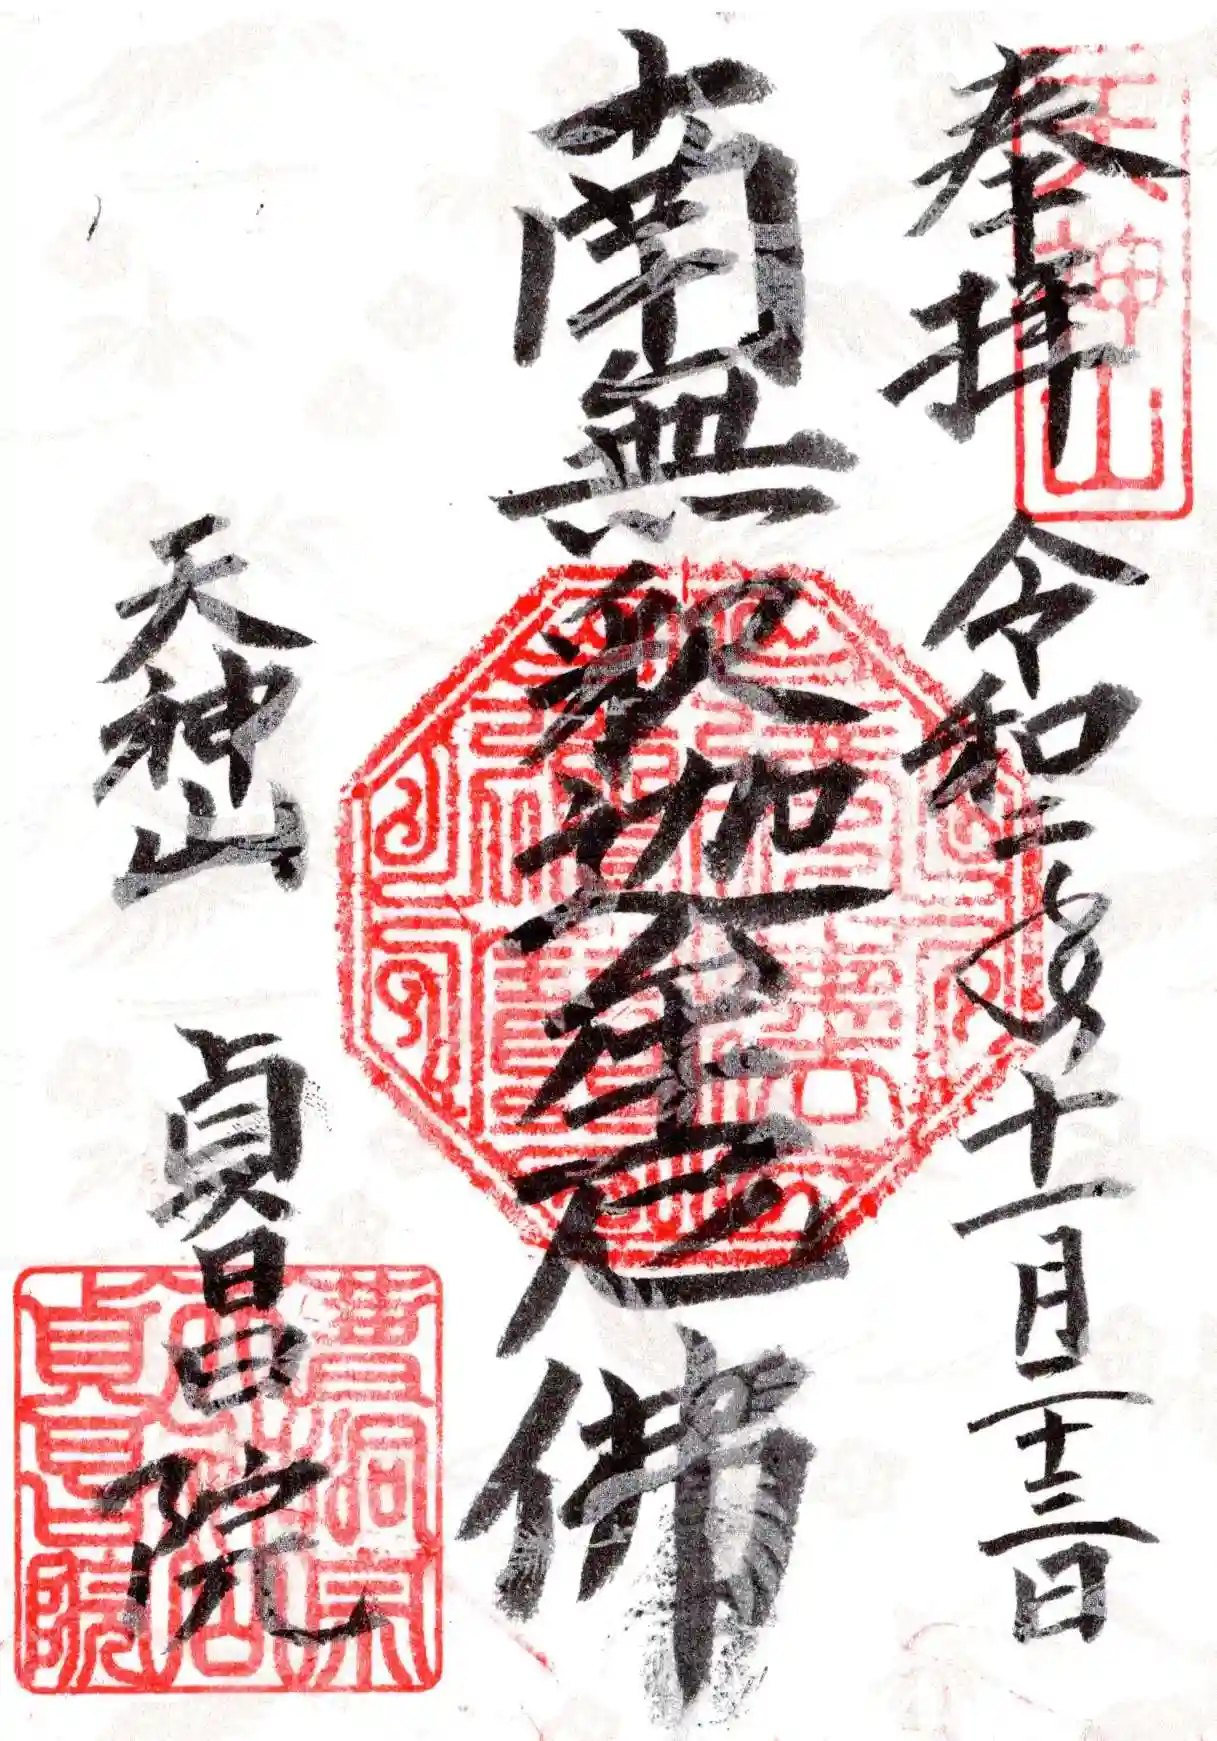 天神山
奉拝 令和二年十一月二十三日
南無釈迦牟尼佛
天神山 貞昌院
曹洞宗
貞昌院